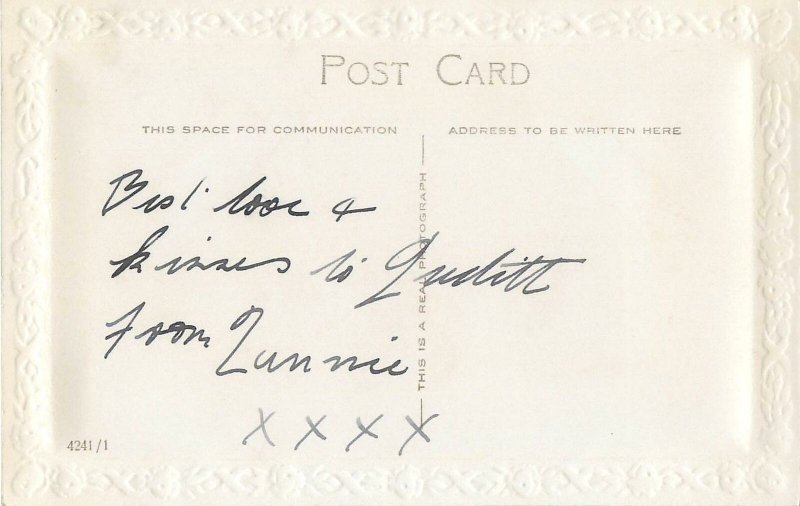 POST CARD
THIS SPACE FOR COMMUNICATION
ADDRESS TO BE WRITTEN HERE
Best love &
kisses to Judith
from
X X X X
THIS IS A REAL PHOTOGRAPH
4241/1